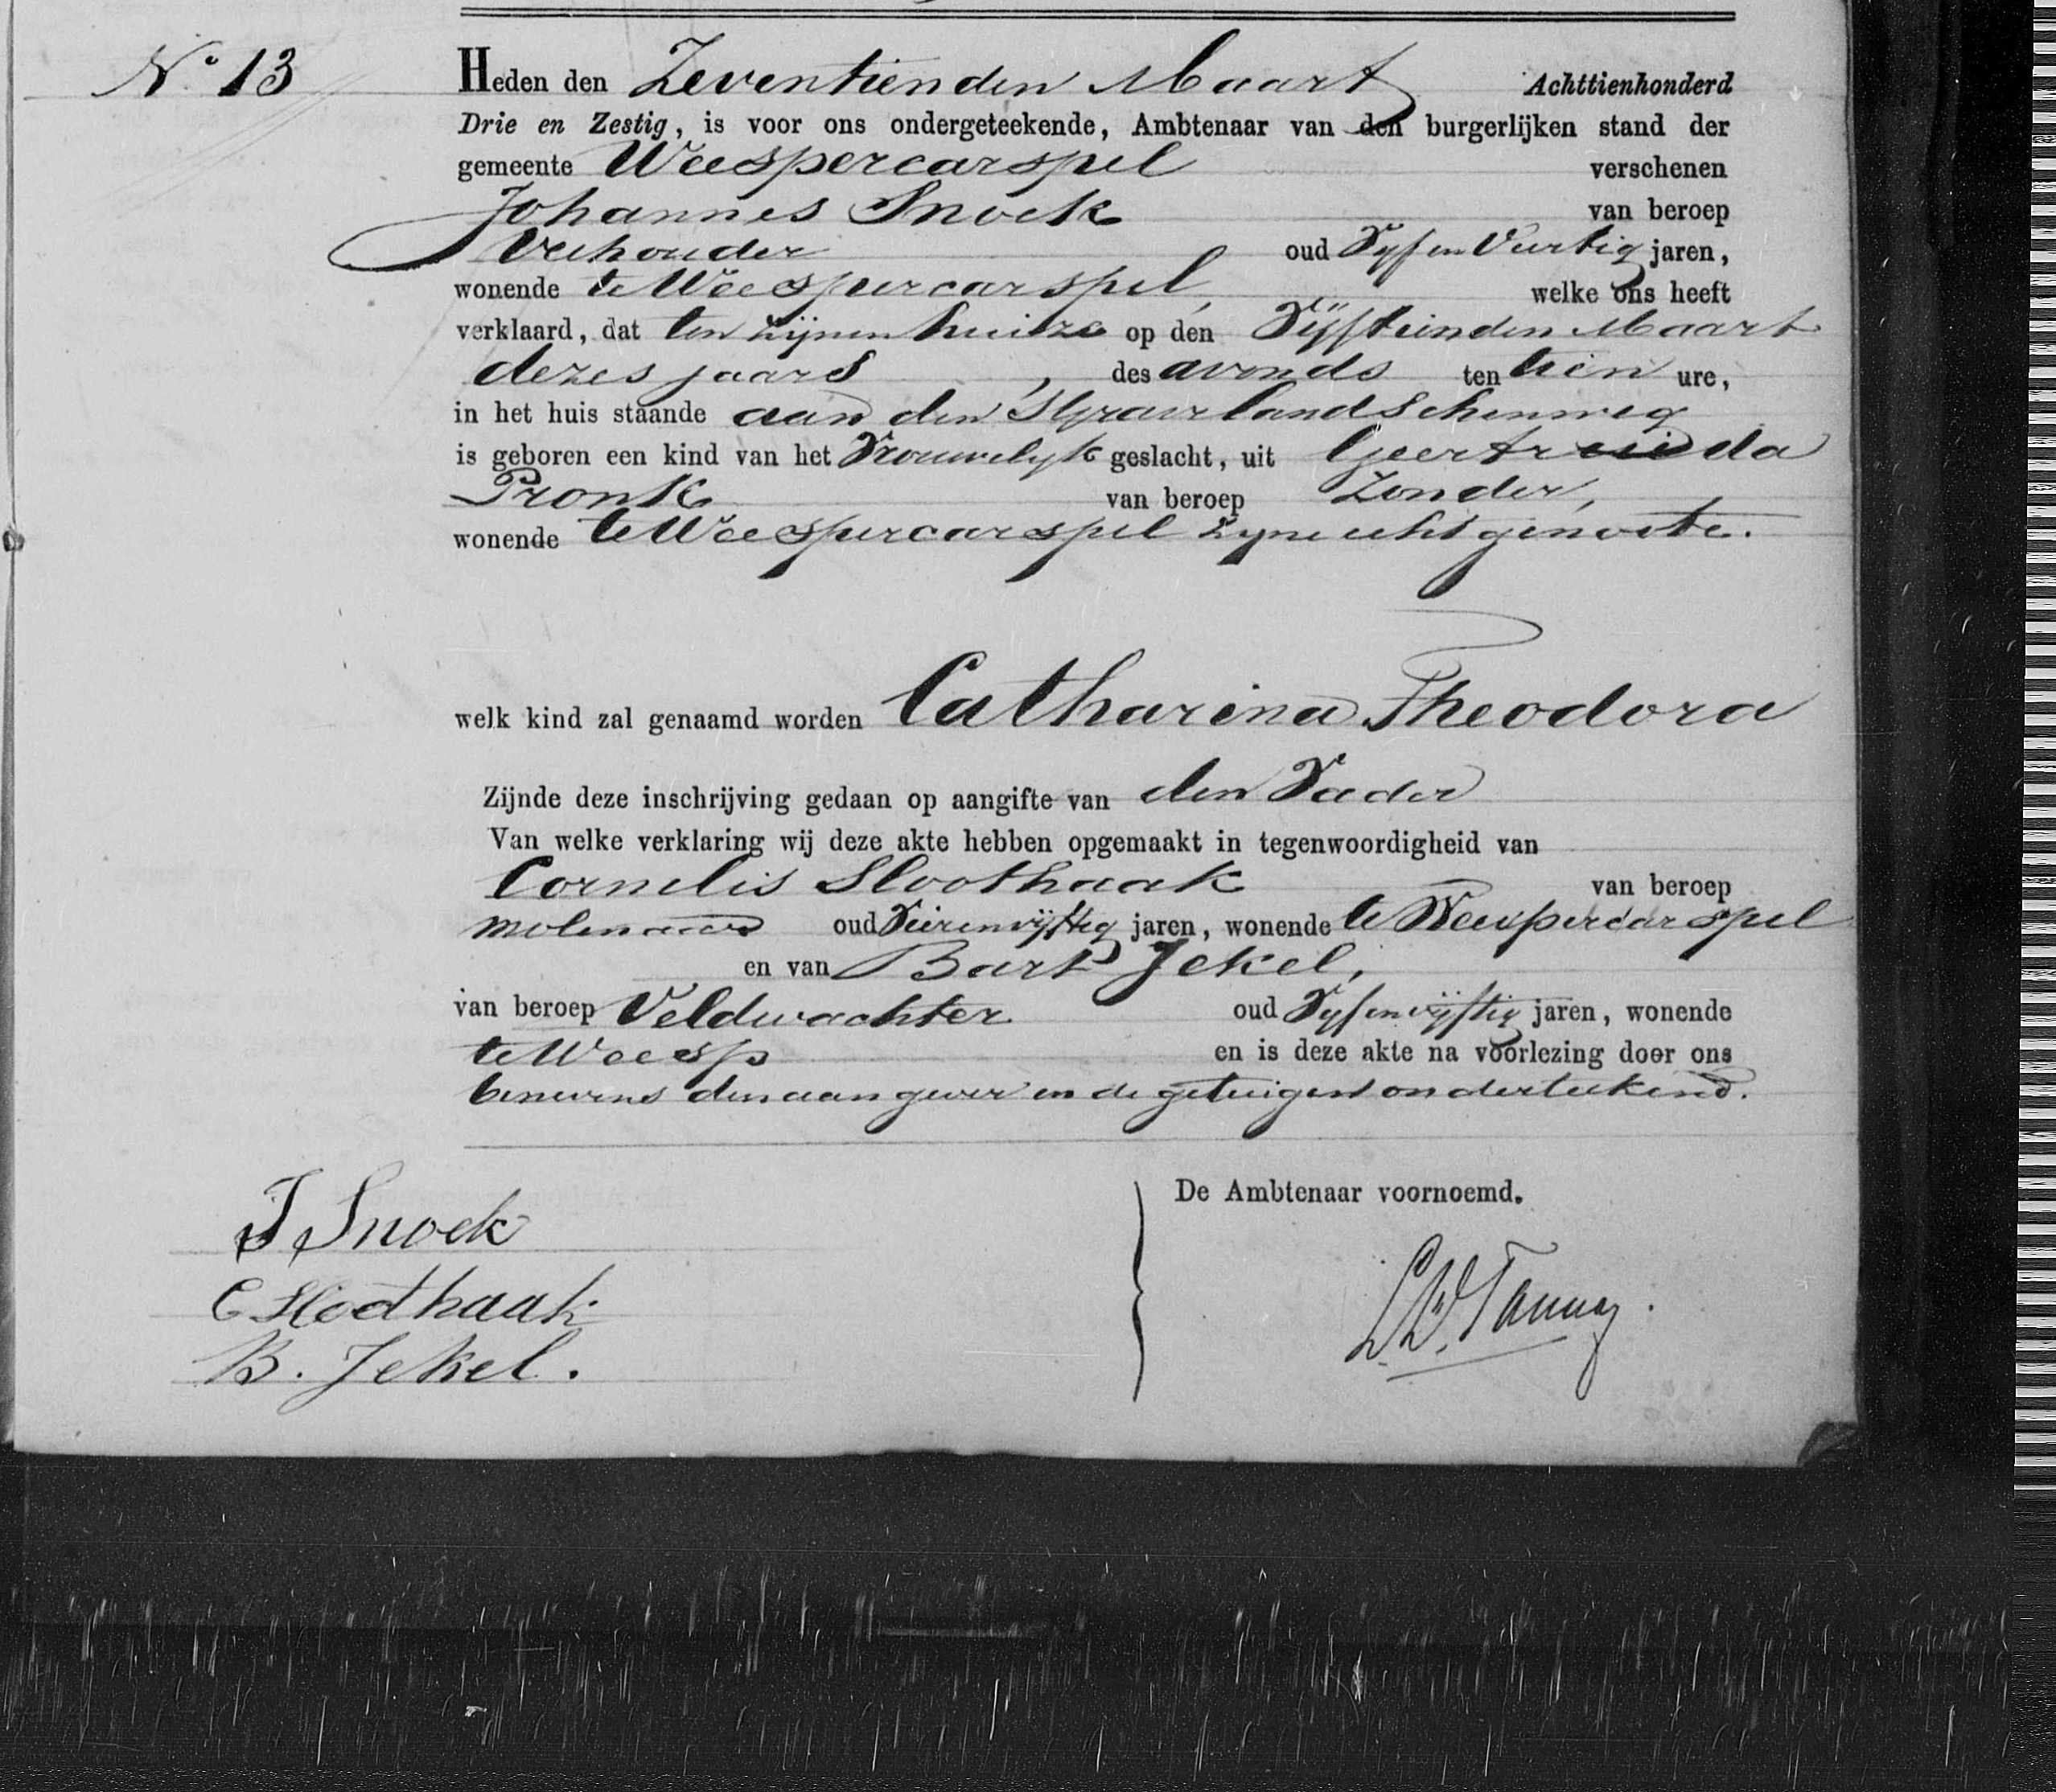 No 13
Heden den Zeventienden Maart Achttienhonderd
Drie en Zestig, is voor ons ondergeteekende, Ambtenaar van den burgerlijken stand der
gemeente Weespercarspel verschenen
Johannes Snoek van beroep
Veehouder oud Vyf en Veertig jaren,
wonende te Weespercarspel, welke ons heeft
verklaard, dat ten zijnen huize op den Vijftienden Maart
dezes jaars, des avonds ten tien ure,
in het huis staande aan den 's Gravelandschenweg
is geboren een kind van het Vrouwelyk geslacht, uit Geertruida
Pronk van beroep Zonder,
wonende te Weespercarspel zyne echtgenoote.
welk kind zal genaamd worden Catharina Theodora
Zijnde deze inschrijving gedaan op aangifte van den Vader
Van welke verklaring wij deze akte hebben opgemaakt in tegenwoordigheid van
Cornelis Sloothaak van beroep
molenaar oud Vierenvijftig jaren, wonende te Weespercarspel
en van Bart Jekel,
van beroep Veldwachter oud Vyfenvijftig jaren, wonende
te Weesp en is deze akte na voorlezing door ons
benevens den aangever en de getuigen onderteekend.
De Ambtenaar voornoemd.
J Snoek
C Sloothaak
B. Jekel.